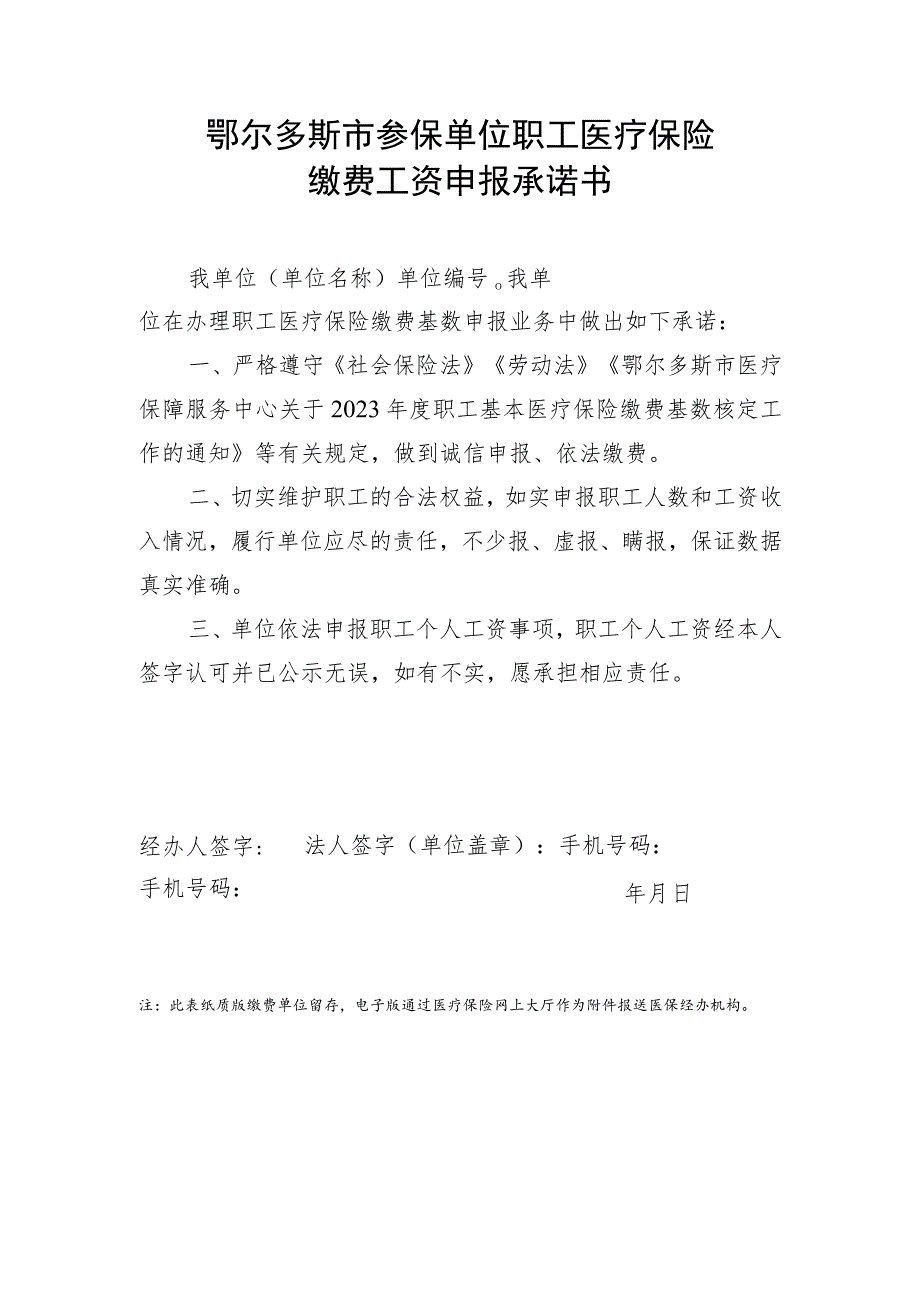 鄂尔多斯市参保单位职工医疗保险
缴费工资申报承诺书
我单位（单位名称）单位编号。我单
位在办理职工医疗保险缴费基数申报业务中做出如下承诺：
一、严格遵守《社会保险法》《劳动法》《鄂尔多斯市医疗
保障服务中心关于 2023 年度职工基本医疗保险缴费基数核定工
作的通知》等有关规定，做到诚信申报、依法缴费。
二、切实维护职工的合法权益，如实申报职工人数和工资收
入情况，履行单位应尽的责任，不少报、虚报、瞒报，保证数据
真实准确。
三、单位依法申报职工个人工资事项，职工个人工资经本人
签字认可并已公示无误，如有不实，愿承担相应责任。
经办人签字： 法人签字（单位盖章）：手机号码：
手机号码： 年月日
注：此表纸质版缴费单位留存，电子版通过医疗保险网上大厅作为附件报送医保经办机构。